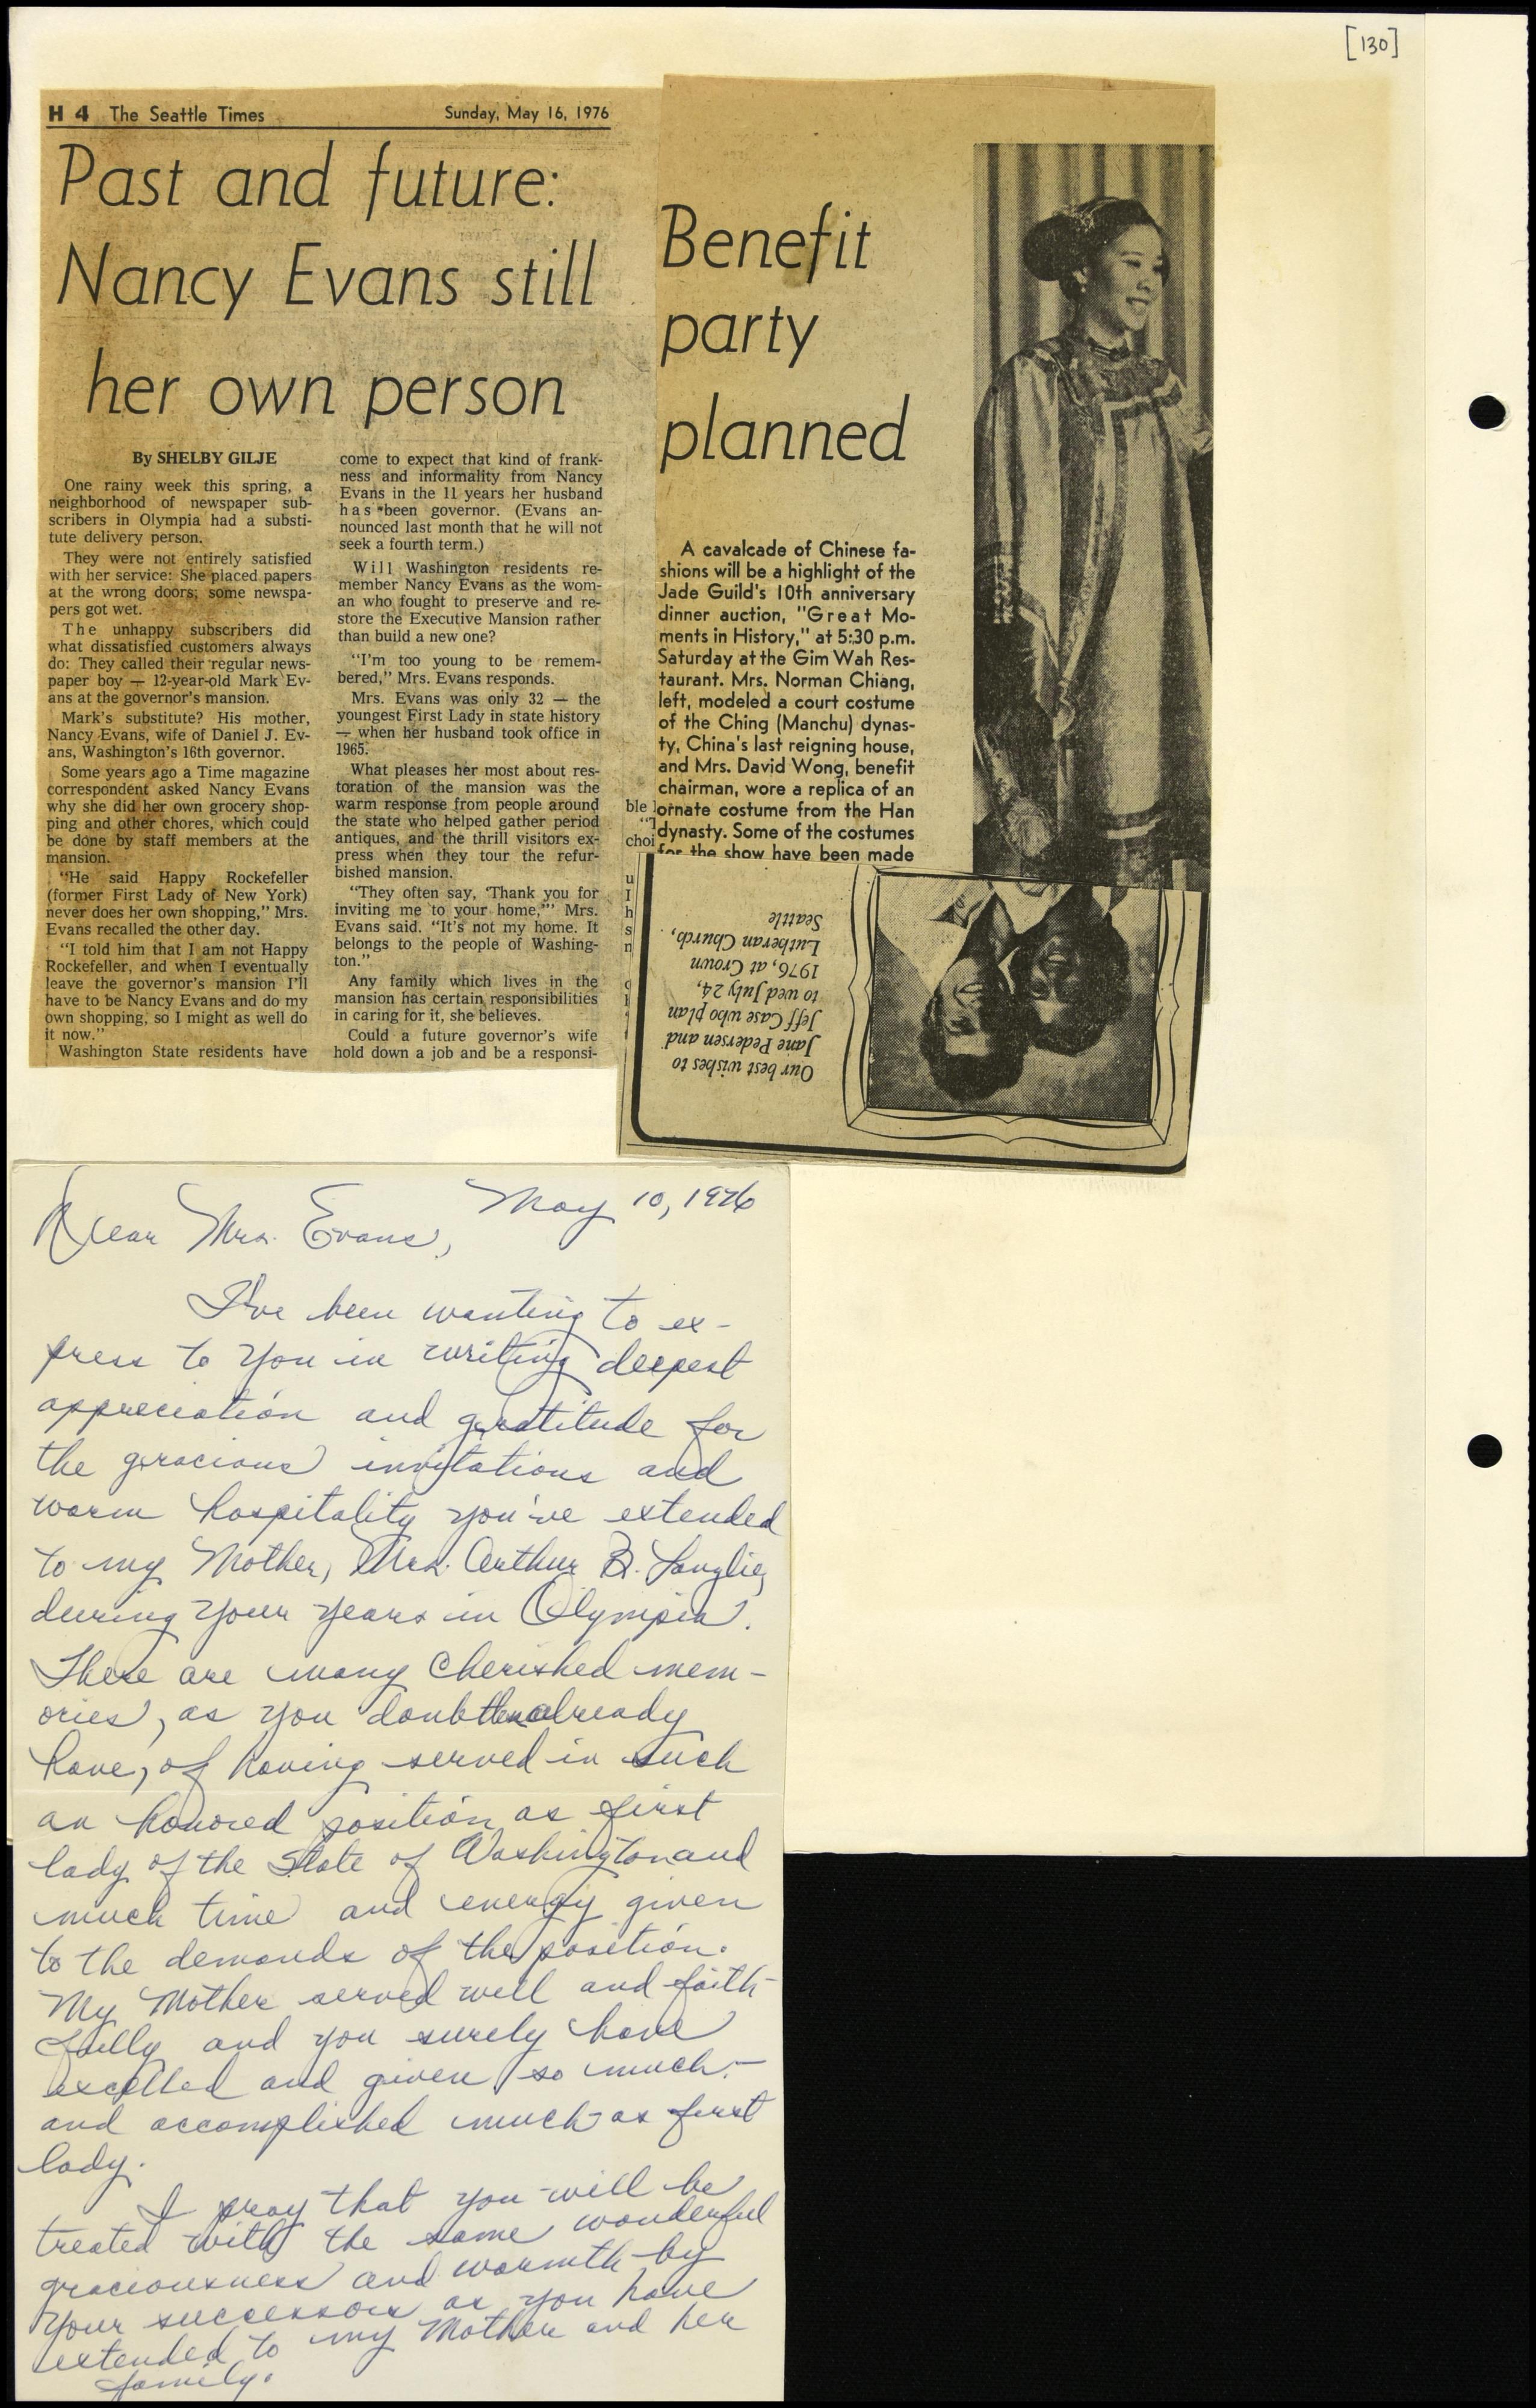 [130]
H 4 The Seattle Times Sunday, May 16, 1976
Past and future:
Nancy Evans still
her own person
By SHELBY GILJE
One rainy week this spring, a
neighborhood of newspaper sub-
scribers in Olympia had a substi-
tute delivery person.
They were not entirely satisfied
with her service: She placed papers
at the wrong doors; some newspa-
pers got wet.
The unhappy subscribers did
what dissatisfied customers always
do: They called their regular news-
paper boy — 12-year-old Mark Ev-
ans at the governor's mansion.
Mark's substitute? His mother,
Nancy Evans, wife of Daniel J. Ev-
ans, Washington's 16th governor.
Some years ago a Time magazine
correspondent asked Nancy Evans
why she did her own grocery shop-
ping and other chores, which could
be done by staff members at the
mansion.
"He said Happy Rockefeller
(former First Lady of New York)
never does her own shopping," Mrs.
Evans recalled the other day.
"I told him that I am not Happy
Rockefeller, and when I eventually
leave the governor's mansion I'll
have to be Nancy Evans and do my
own shopping, so I might as well do
it now."
Washington State residents have
come to expect that kind of frank-
ness and informality from Nancy
Evans in the 11 years her husband
has been governor. (Evans an-
nounced last month that he will not
seek a fourth term.)
Will Washington residents re-
member Nancy Evans as the wom-
an who fought to preserve and re-
store the Executive Mansion rather
than build a new one?
"I'm too young to be remem-
bered," Mrs. Evans responds.
Mrs. Evans was only 32 — the
youngest First Lady in state history
— when her husband took office in
1965.
What pleases her most about res-
toration of the mansion was the
warm response from people around
the state who helped gather period
antiques, and the thrill visitors ex-
press when they tour the refur-
bished mansion.
"They often say, 'Thank you for
inviting me to your home,'" Mrs.
Evans said. "It's not my home. It
belongs to the people of Washing-
ton."
Any family which lives in the
mansion has certain responsibilities
in caring for it, she believes.
Could a future governor's wife
hold down a job and be a responsi-
ble
choi
Benefit
party
planned
A cavalcade of Chinese fa-
shions will be a highlight of the
Jade Guild's 10th anniversary
dinner auction, "Great Mo-
ments in History," at 5:30 p.m.
Saturday at the Gim Wah Res-
taurant. Mrs. Norman Chiang,
left, modeled a court costume
of the Ching (Manchu) dynas-
ty, China's last reigning house,
and Mrs. David Wong, benefit
chairman, wore a replica of an
ornate costume from the Han
dynasty. Some of the costumes
for the show have been made
Our best wishes to
Jane Pedersen and
Jeff Case who plan
to wed July 24,
1976, at Crown
Lutheran Church,
Seattle
May 10, 1976
Dear Mrs. Evans,
I've been wanting to ex-
press to you in writing deepest
appreciation and gratitude for
the gracious invitations and
warm hospitality you've extended
to my Mother, Mrs. Arthur B. Langlie,
during your years in Olympia.
There are many cherished mem-
ories, as you doubtless already
have, of having served in such
an honored position as first
lady of the State of Washington and
much time and energy given
to the demands of the position.
My Mother served well and faith-
fully and you surely have
excelled and given so much -
and accomplished much as first
lady.
I pray that you will be
treated with the same wonderful
graciousness and warmth by
your successors as you have
extended to my Mother and her
family.